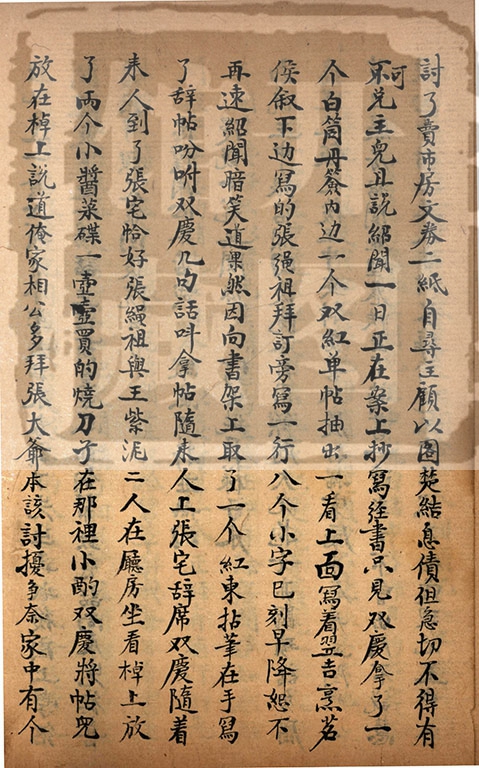 討了賣市房文券二紙自尋主顧以圖楚結息債但急切不得有
可
不兌主兒且說紹聞一日正在案上抄寫經書只見双慶拿了一
个白筒丹簽內边一个双紅单帖抽出一看上面寫着翌吉烹茗
侯叙下边寫的張繩祖拜訂旁寫一行八个小字巳刻早降恕不
再速紹聞暗笑道果然因向書架上取了一个紅柬拈筆在手寫
了辞帖吩咐双慶几句話呌拿帖隨来人上張宅辞席双慶隨着
来人到了張宅恰好張繩祖與王紫泥二人在廳房坐看棹上放
了两个小醬菜碟一壷壷買的燒刀子在那裡小酌双慶將帖兒
放在棹上說道俺家相公多拜張大爺本該討擾争奈家中有个